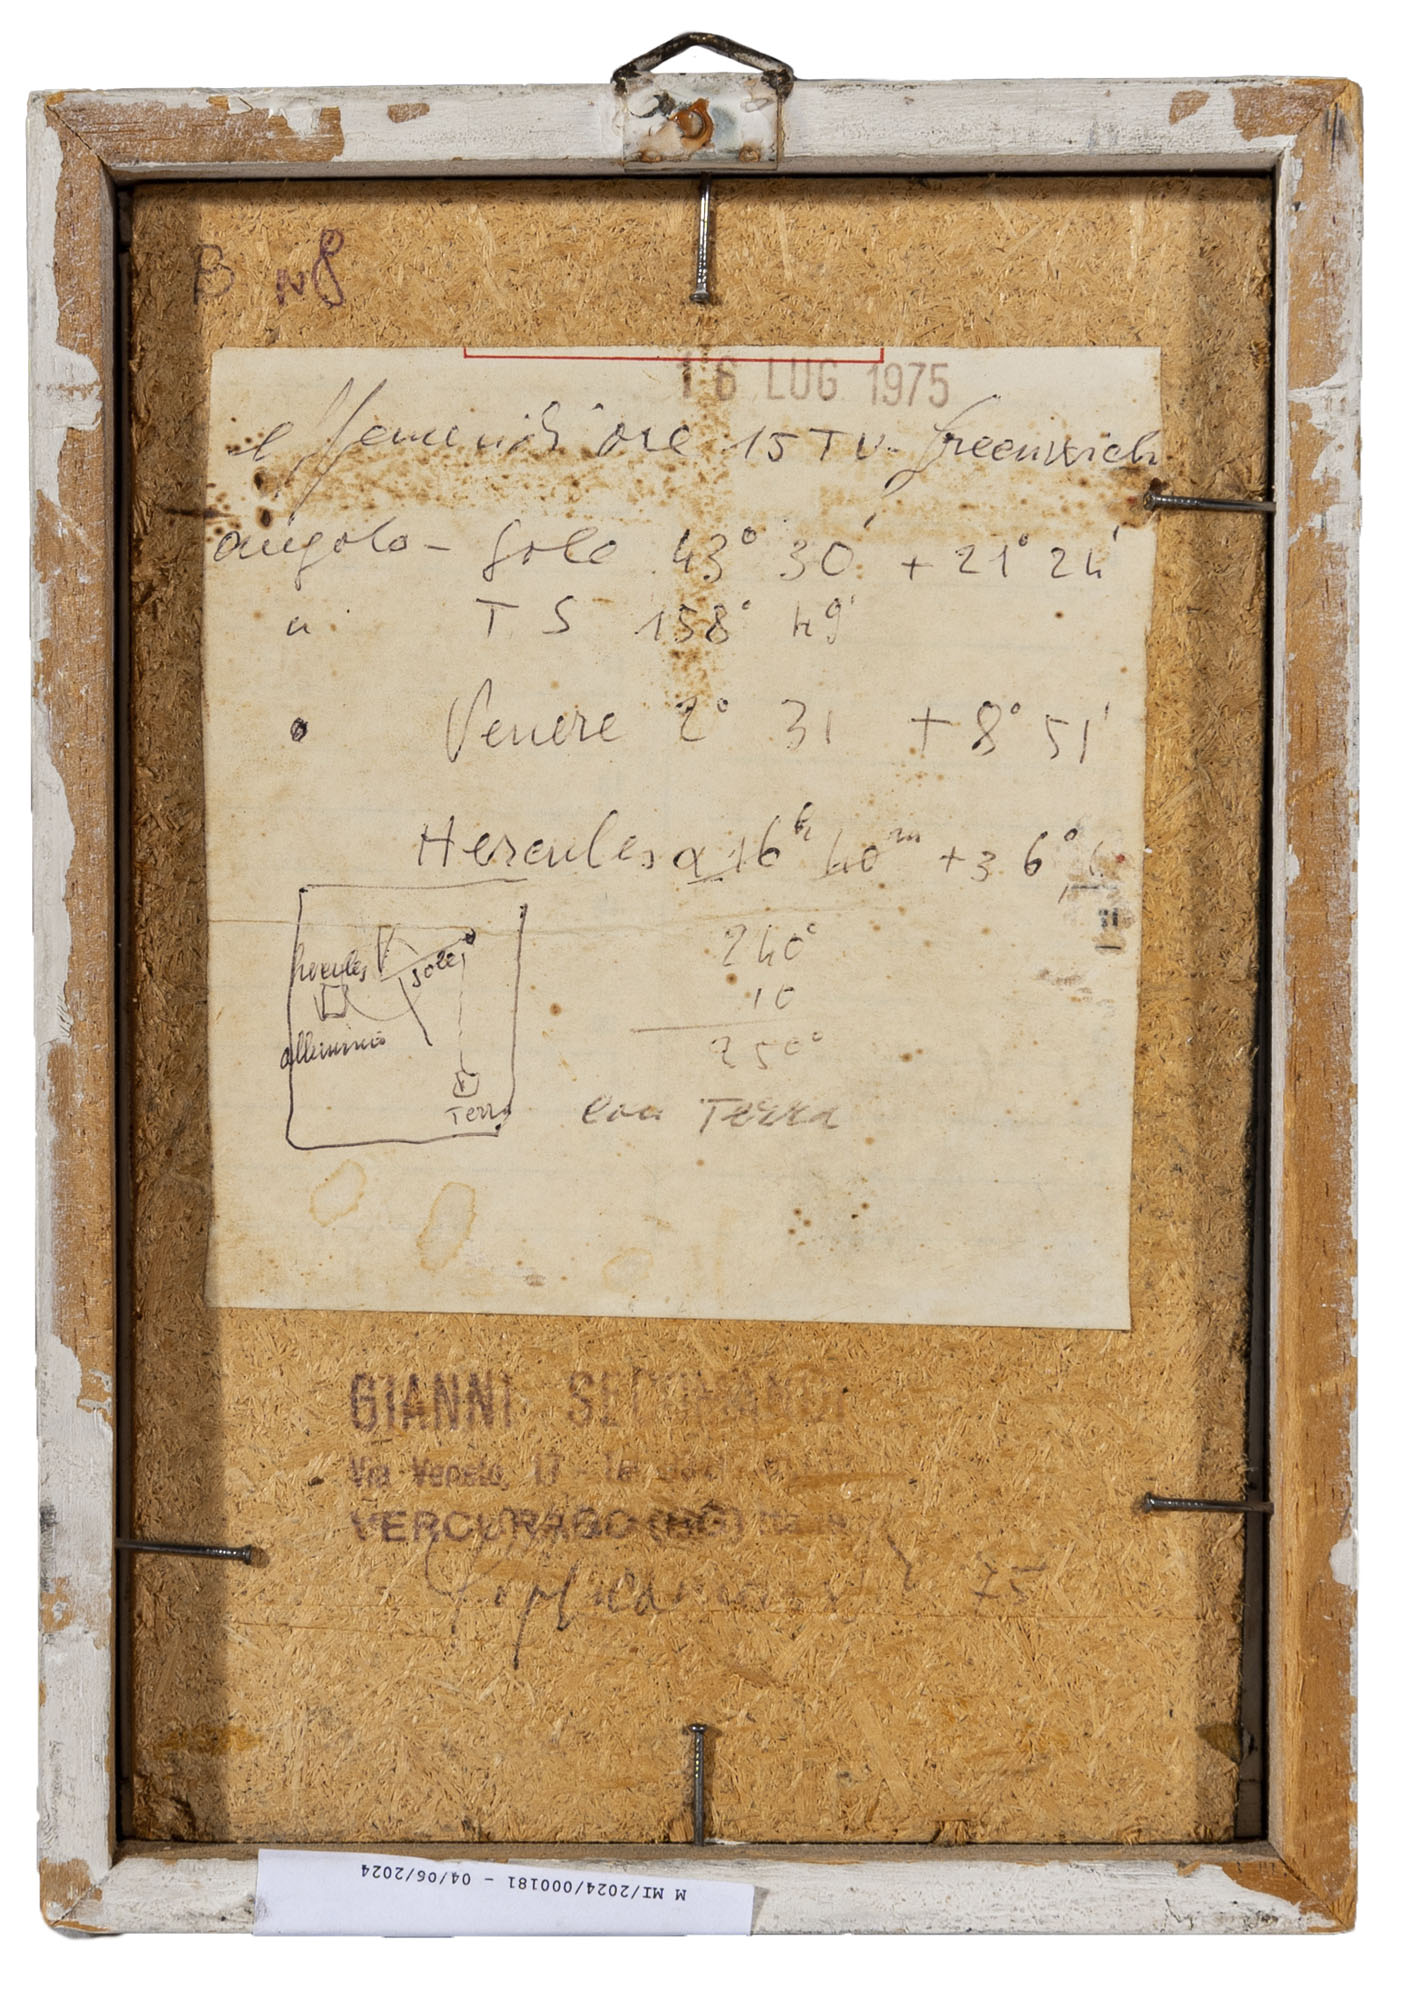 B N8
16 LUG 1975
effemeridi ore 15 TU. Greenwich
angolo - Sole 43° 30' + 21° 24'
" T S 158° 49'
Venere 2° 31 + 8° 51'
Hercules α 16h 40m + 36°
240°
10
250°
hercules V Sole
alluminio
Terra
con Terra
GIANNI SECOMANDI
Via Veneto, 17
VERCURAGO (BG)
75
M MI/2024/000181 - 04/06/2024